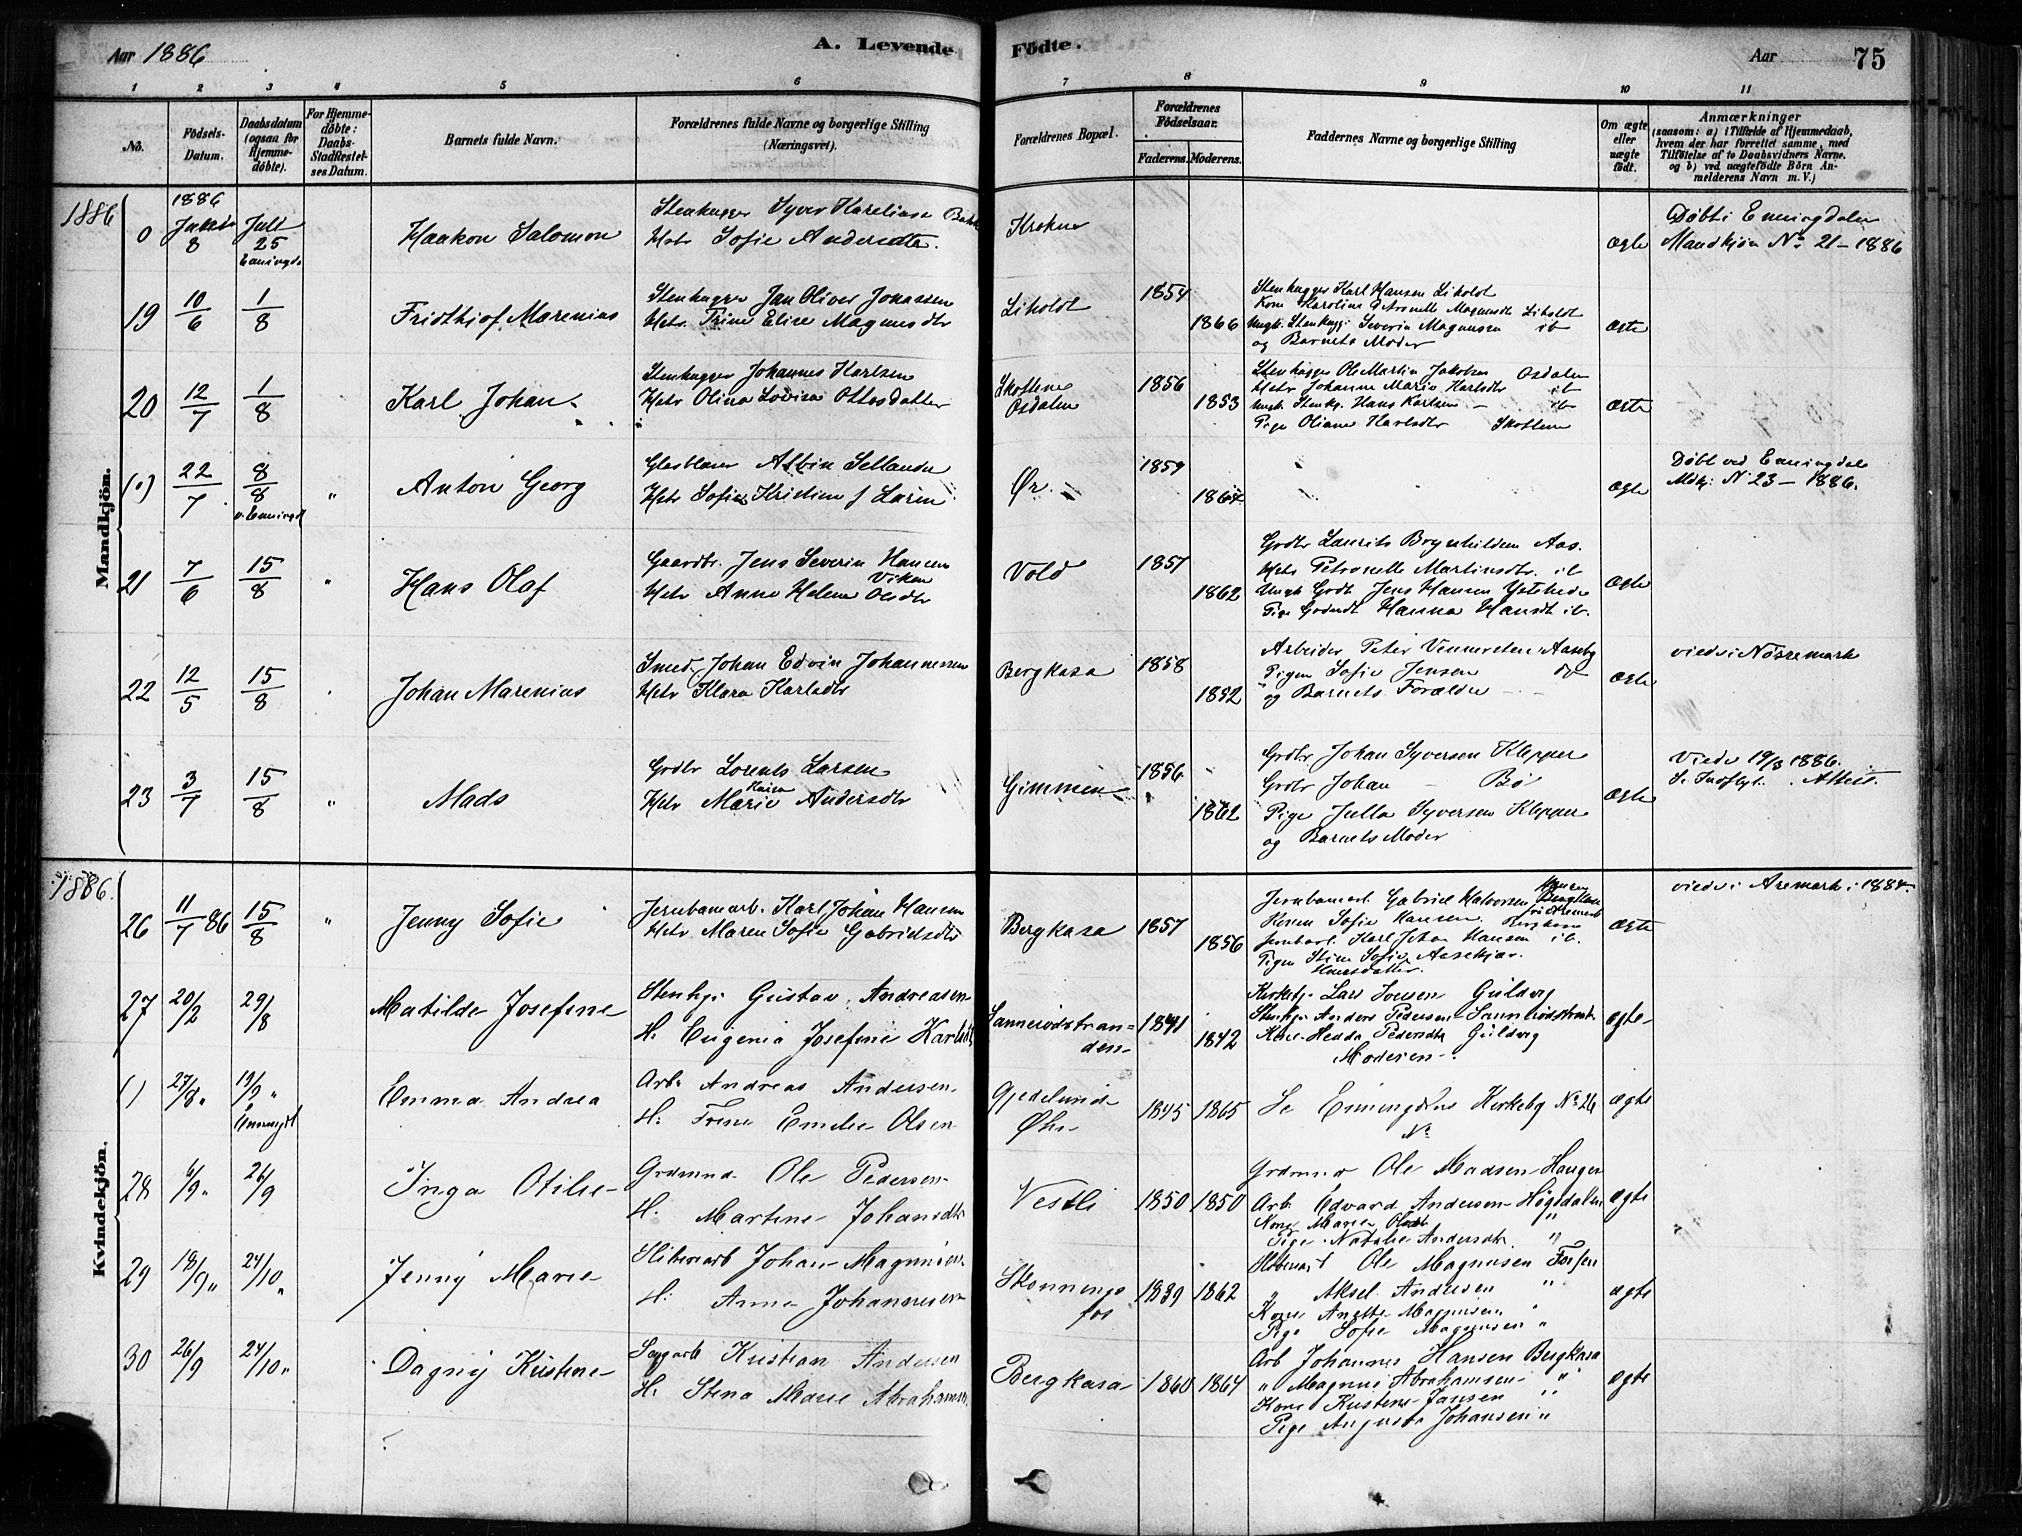 Aar 1886
A. Levende
Födte.
Aar
75
1 2 3 4 5 6 7 8 9 10 11
No.
Födsels-Datum.
Daabsdatum (ogsaa for Hjemme-döbte).
For Hjemme-döbte: Daabs-Stadfæstel-ses Datum.
Barnets fulde Navn.
Forældrenes fulde Navne og borgerlige Stilling (Næringsvei).
Forældrenes Bopæl.
Forældrenes Födselsaar.
Faderens. Moderens.
Faddernes Navne og borgerlige Stilling
Om ægte eller uægte födt.
Anmærkninger
(saasom: a) i Tilfælde af Hjemmedaab,
hvem der har forrettet samme, med
Tilföielse af to Daabsvidners Navne,
og b) ved uægtefödte Börn An-
melderens Navn m. V.)
Mandkjön.
1886
0 1886 8 Juli 25
Haakon Salomon
Stenhugger Syver Kareliuse
Hstr Sofie Andersdtr.
Kroken
ægte
Døbt i Enningdalen
Mandkjøn No 21 - 1886
19 10/6 1/8
Fridthjof Marenius
Stenhugger Jan Oliver Jonassen
Hstr. Trine Elise Magnusdtr
Liholdt
1854 1866
Stenhugger Karl Hansen Liholdt
Stenhugg. Severin Magnussen ib
og Barnets Moder
ægte
20 12/7 1/8
Karl Johan
Stenhugger Johannes Karlsen
Hstr Olina Lovise Ottosdatter
Osdalen
1856 1853
Stenhugger Ole Martin Jakobsen Osdalen
Hstr Johanne Marie Karlsdtr ib
Ungk. Stenhg. Hans Karlsen - ib
Pige Oliane Karlsdtr
ægte
(0) 22/7 8/8
Anton Georg
Glasblaser Albin Sellander
Hstr Sofie Kristine f Larsen
Ør.
1859 1864
ægte
Døbt ved Enningdalen
Mdkj. No 23 - 1886.
21 7/6 15/8
Hans Olaf
Gaardbr. Jens Severin Hansen
Viken
Hstr Anne Helene Olsdtr
Vold
1857 1862
Grdbr Laurits Brynhildsen Aas.
Hstr Petronelle Martinsdtr. ib
Ungk Jens Hansen Ystehede
Pige Hanna Hansdt ib.
ægte
22 12/5 15/8
Johan Marenius
Smed Johan Edvin Johannessen
Hstr Klara Karlsdtr
Bergkasa
1858 1852
Arbeider Peter
Pigen Sofie Jensen do
og Barnets Forældre -
ægte
viede i Nössemark
23 3/7 15/8
Mads
Grdbr Lorents Larsen
Hstr Marie Andersdtr
Gimmen
1856 1862
Grdbr Johan Syversen Klepper
Grdbr Johan - Bö
Pige Julla Syversen Klepper
og Barnets Moder
ægte
Viede 19/3 1886.
Attest.
Kvindekjön.
1886.
26 11/7 86 15/8
Jenny Sofie
Jernbanearb. Karl Johan Hansen
Hstr Maren Sofie Gabrielsdtr
Bergkasa
1857 1856
Jernbanearb. Gabriel Halvorsen
Konen Sofie Hansen
Jernbarb. Karl Johan Hansen ib.
ægte
viede i Aremark i 1884.
27 20/2 29/8
Matilde Josefine
Stenhg. Gustav Andreasen
H. Eugenia Josefine Karlsdtr
Sannerødstran-
den
1841 1842
Kirkebtj. Lars Iversen Guldvig
Stenhg. Anders Pedersen
Kone Hedda Pedersdtr Guldvig
Moderen
ægte
() 27/8 19/9
Emma Andrea
Arb. Andreas Andersen
H. Trine Emelie Olsen
Gjedelund
Øhr
1845 1865
Se Enningdns Kirkebg No 26
ægte
28 6/9 26/9
Inga Otilie
Grdmnd. Ole Pedersen
H. Martine Johansdtr
Vestli
1850 1850
Grdmnd Ole Madsen Hauger
Arb. Edvard Andersen Högsdalen
Kone Maren Olsdt "
Pige Natalie Andersdtr. "
ægte
29 18/9 24/10
Jenny Marie
Sliberiarb Johan Magnusen
H. Anne Johannesen
Skonnings
fos
1839 1862
Ole Magnusen Fossen
" Aksel Andersen "
Kone Anette Magnusen "
Pige Sofie Magnusen "
ægte
30 26/9 24/10
Dagny Kristine
Sagarb Kristian Andersen
H. Stena Marie Abrahamsen
Bergkasa
1860 1864
Arb Johannes Hansen Bergkasa
" Magnus Abrahamsen "
Kone Kristene Jansen "
Pige Augusta Johansen "
ægte